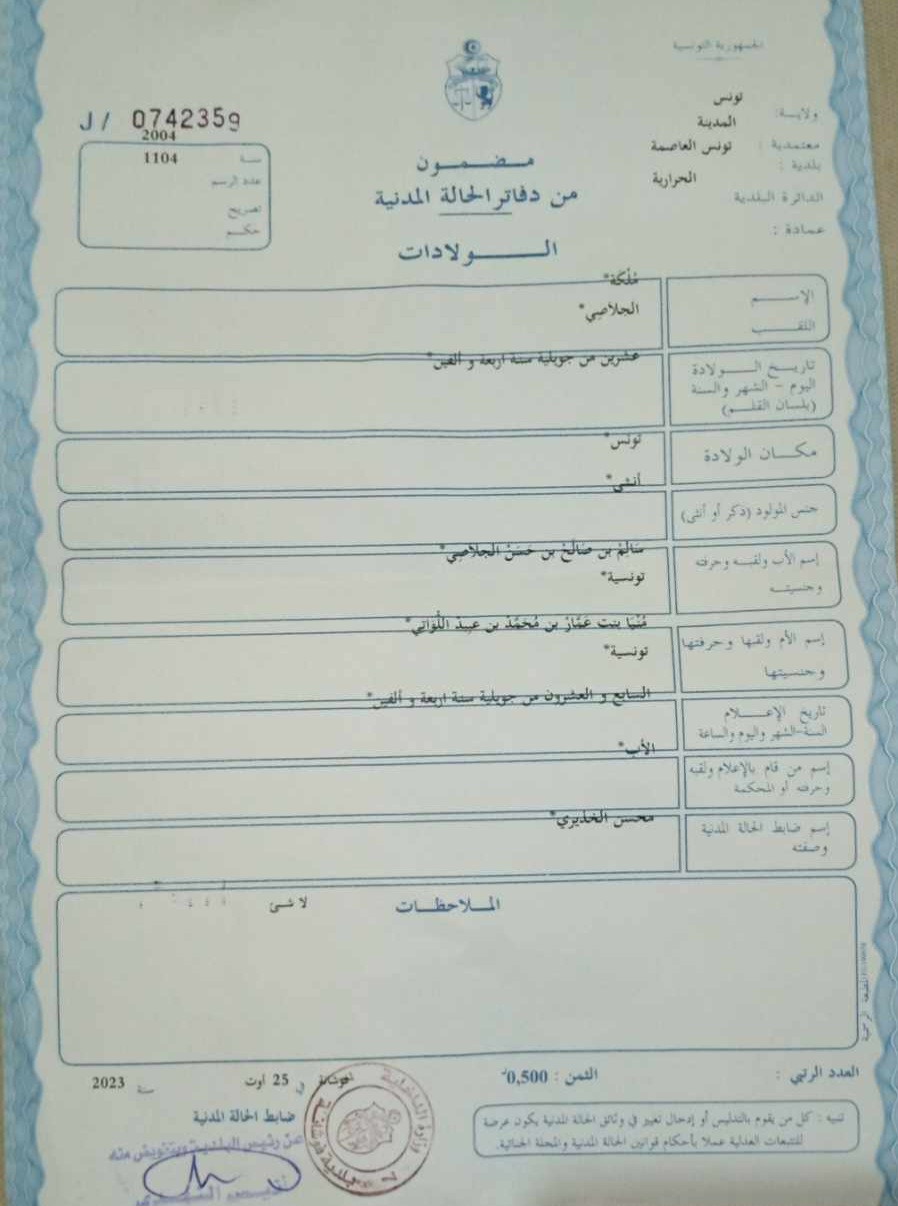 الجمهورية التونسية
ولاية: تونس
المدينة
معتمدية :
تونس العاصمة
بلدية :
الحرايرية
الدائرة البلدية
عمادة :
J/ 0742359
2004
سنة 1104
عدد الرسم
تصريح
حكم
مضمون
من دفاتر الحالة المدنية
الولادات
الإسم
مُلْكَة*
اللقب
الجلاصي*
تاريخ الولادة
اليوم - الشهر والسنة
(بلسان القلم)
عشرين من جويلية سنة اربعة و ألفين*
مكان الولادة
تونس*
جنس المولود (ذكر أو أنثى)
أنثى*
إسم الأب ولقبه وحرفته
وجنسيته
سَالِمْ بن صَالَحْ بن حَسَنْ الجلاصي*
تونسية*
إسم الأم ولقبها وحرفتها
وجنسيتها
مُنْيَا بنت عَمَّارْ بن مُحَمَّدْ بن عبيدْ اللَّوَاتِي*
تونسية*
تاريخ الإعلام
السنة-الشهر واليوم والساعة
السابع و العشرون من جويلية سنة اربعة و ألفين*
إسم من قام بالإعلام ولقبه
وحرفته أو المحكمة
الأب*
إسم ضابط الحالة المدنية
وصفته
محسن الخذيري*
الملاحظات
لا شئ
المطبعة الرسمية
العدد الرتبي :
الثمن : 0,500د
في 25 أوت سنة 2023
ضابط الحالة المدنية
عن رئيس البلدية وبتفويض منه
وزارة الداخلية
تنبيه : كل من يقوم بالتدليس أو إدخال تغيير في وثائق الحالة المدنية يكون عرضة
للتتبعات العدلية عملا بأحكام قوانين الحالة المدنية والمجلة الجنائية.